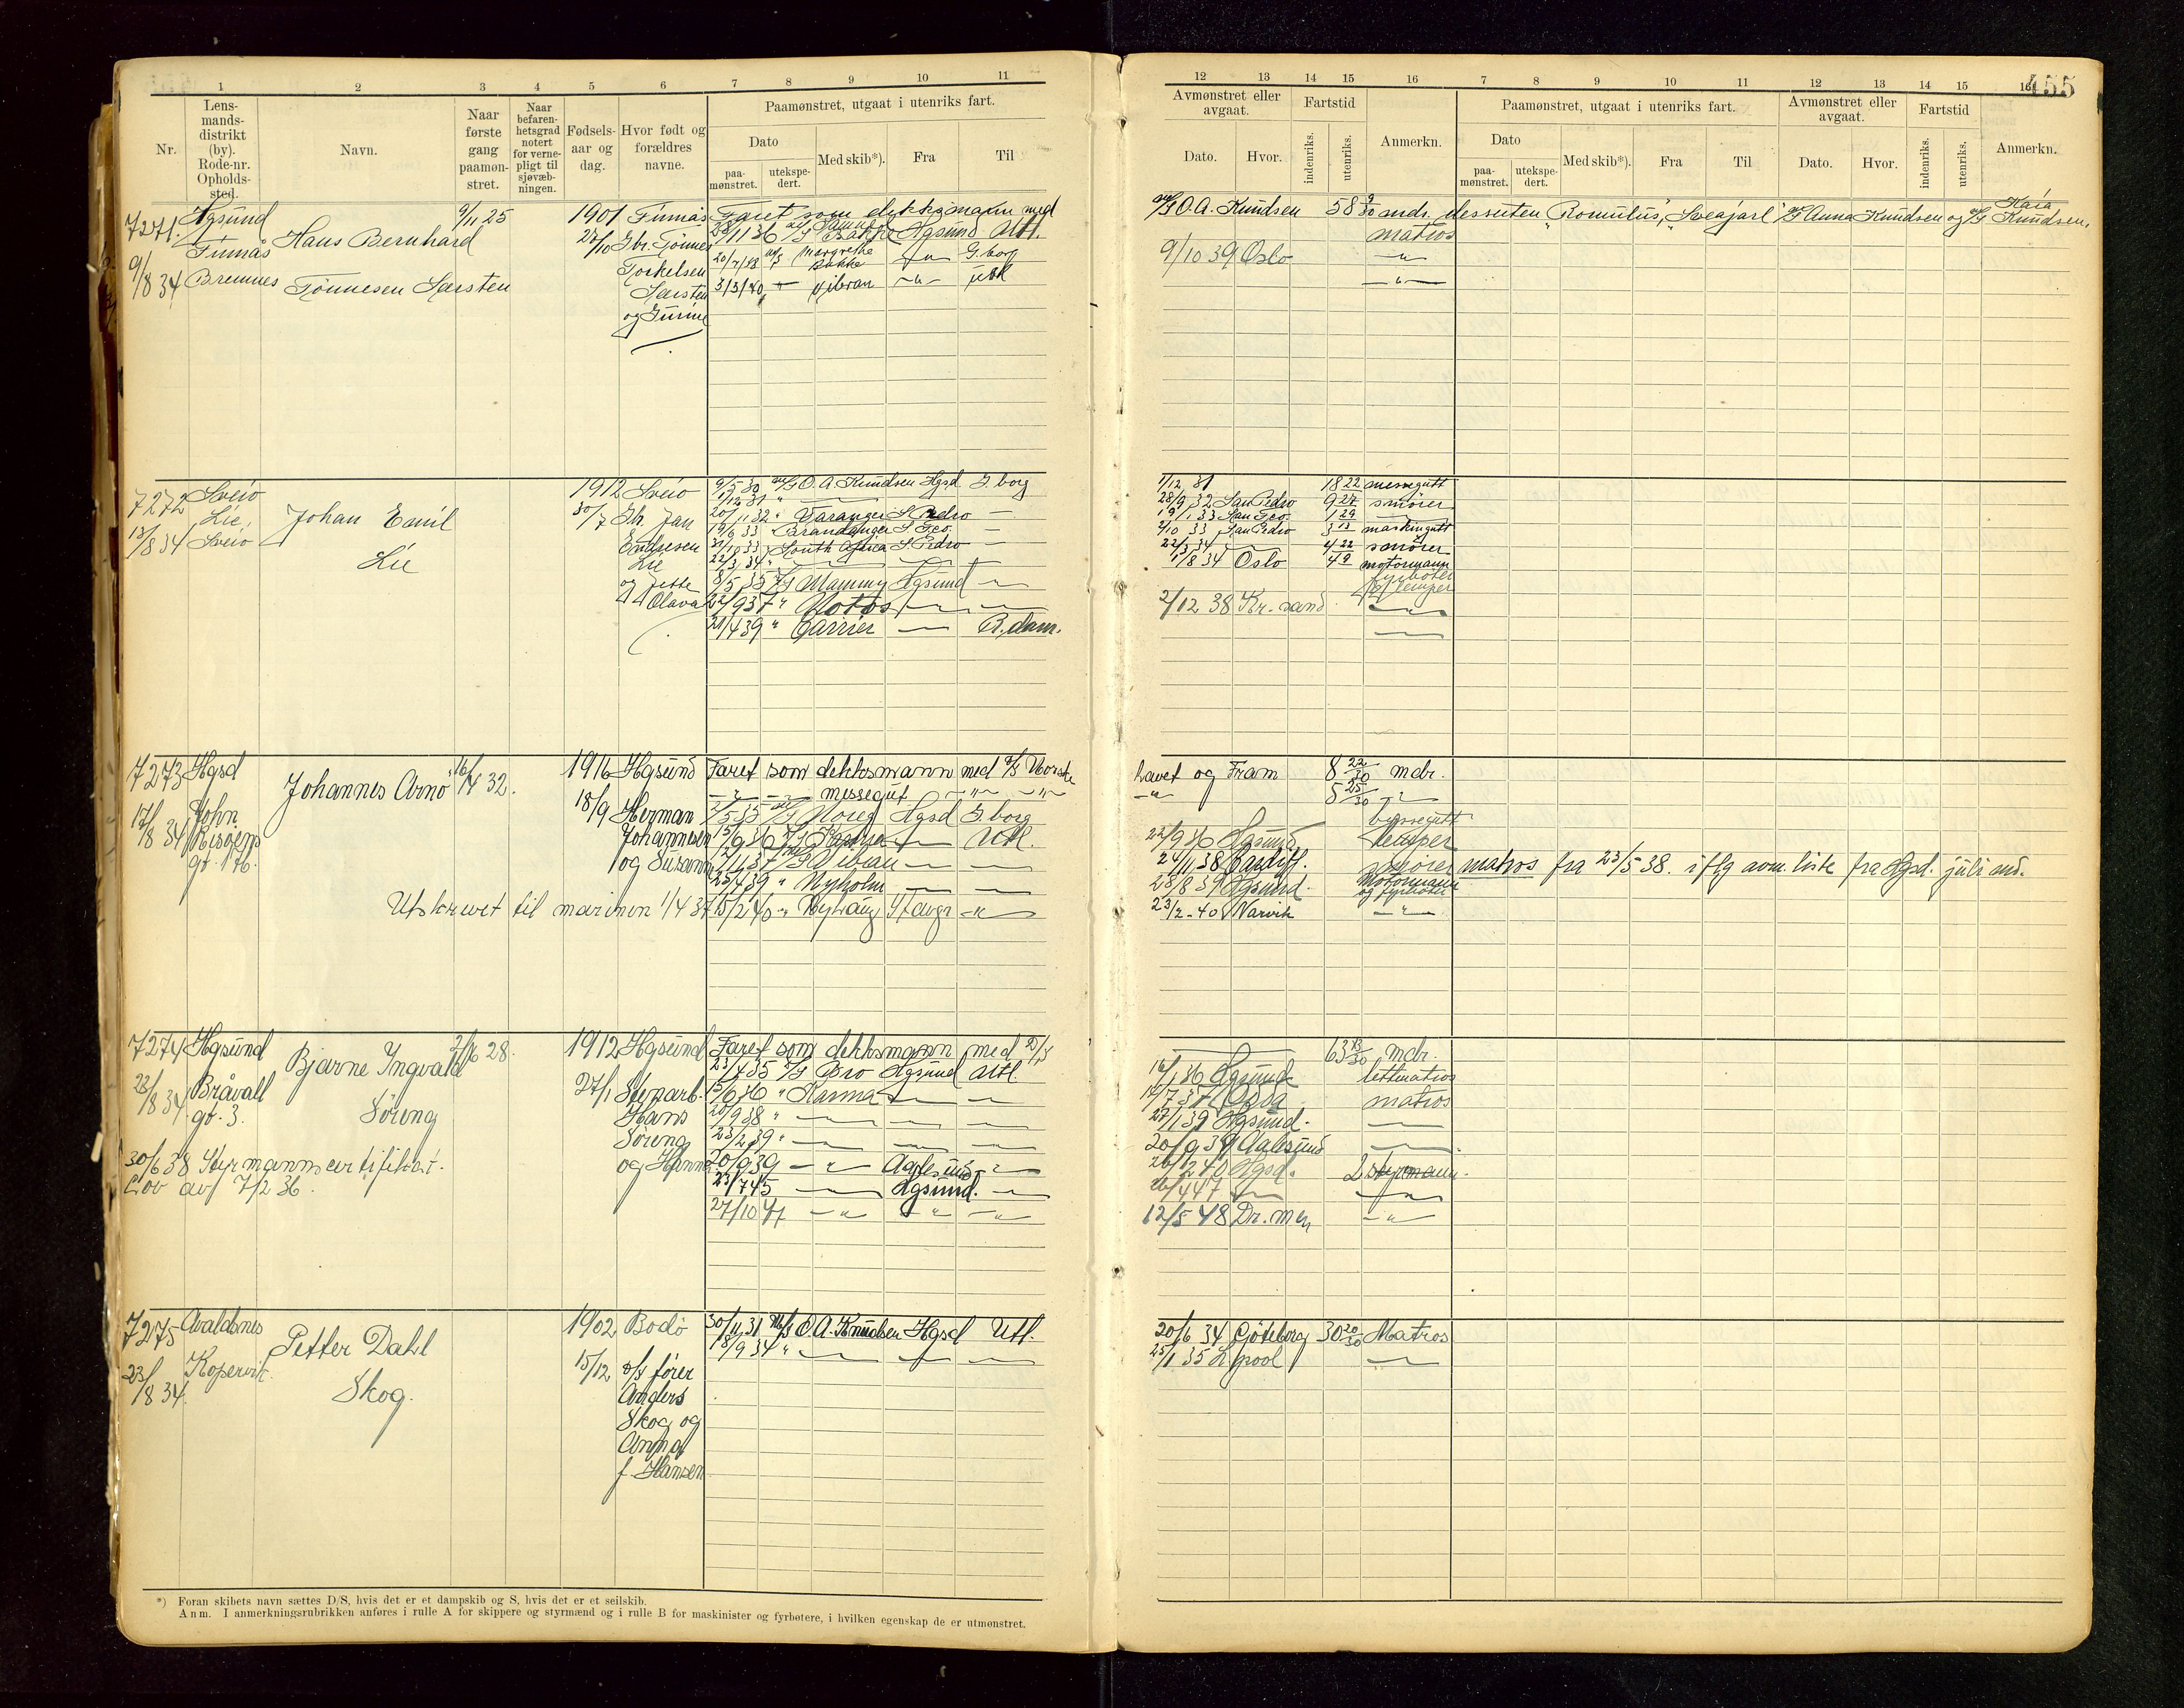 1 2 3 4 5 6 7 8 9 10 11
Nr.
Lens-
mands-
distrikt
(by).
Rode-nr.
Opholds-
sted.
Navn.
Naar
første
gang
paamøn-
stret.
Naar
befaren-
hetsgrad
notert
for verne-
pligt til
sjøvæb-
ningen.
Fødsels-
aar og
dag.
Hvor født og
forældres
navne.
Paamønstret, utgaat i utenriks fart.
Dato
paa-
mønstret.
utekspe-
dert.
Med skib*).
Fra
Til
12 13 14 15 16 7 8 9 10 11 12 13 14 15 16
455
Avmønstret eller
avgaat.
Dato.
Hvor.
Fartstid
indenriks.
utenriks.
Anmerkn.
Paamønstret, utgaat i utenriks fart.
Dato
paa-
mønstret.
utekspe-
dert.
Med skib*).
Fra
Til
Avmønstret eller
avgaat.
Dato.
Hvor.
Fartstid
indenriks.
utenriks.
Anmerkn.
7271.
9/8 34
Hgsund
Finnås
Bremnes
Hans Bernhard
Tønnesen Sarsten
9/11 25
1901
27/10
Finnås
Gbr. Tønnes
Torkelsen
Sarsten
og
Faret som dekksmann med
28/11 36 Bakke Hgsund Utl.
20/7/48 M/S Margrethe Bakke —"— G.borg
3/3/40 —"—
M/S O.A. Knudsen 58 9/30 mdr. dessuten "Romulus", "Sveajarl" M/S Anna Knudsen og M/S Kaia Knudsen.
matros
9/10 39 Oslo —"—
—"—
7272
13/8 34
Sveio
Lie,
Sveio
Johan Emil
Lie
1912
30/7
Sveio
Gb. Jan
Endresen
Lie
og Jette
Olava
9/5 30 M/S O.A. Knudsen Hgsd G.borg
1/12 31 " —
20/11 32 " Varanger S. Pedro —
19/6 33 Brandanger S. Fco. —
31/10 33 South Africa S. Pedro —
22/3 34 " —
8/5 35 D/S Mammy Hgsund —
22/9 37 " Notos — —
21/4 39 " Carrier — R.dam.
1/12 31 18 22 messegutt
28/9 32 San Pedro 9 27 smører
19/1 33 San Fco. 1 29
2/10 33 San Pedro 3 13 maskingutt
22/3 34 — 4 22 smører
1/8 34 Oslo 4 9 motormann
fyrbøter
lemper
2/12 38 Kr.sand —
—
7273
17/8 34
Hgsd
John
Risøens
gt. 176.
Johannes Arno
16/4 32.
1916
18/9
Hgsund
Herman
Johannesen
og Susanna
Faret som dekksmann med D/S Norske
—"— —"— messegut —"— —"—
2/5 35 M/S Noreg Hgsd G.borg
15/9 36 D/S — Utl.
7/11 37 — —
25/7 39 " Nyholm — —
15/2 40 —"— Nyhaug Stavgr —"—
Utskrevet til marinen 1/4 37
havet og Fram 8 22/30 mdr.
—"— 5 25/30 —"—
byssegutt
22/9 36 Hgsund lemper
24/11 38 Cardiff. smører matros fra 23/5 38. iflg avm. liste fra Hgsd. juli md.
28/8 39 Hgsund. Motormann og fyrbøter
23/2-40 Narvik —"—
7274
23/8 34
Hgsund
Bråvall
gt. 3.
Bjarne Ingvald
Søreng
2/6 28.
1912
27/1
Hgsund
Stenarb.
Hans
Søreng
og Hanna
30/6 38 Styrmannscertifikat.
Lov av 7/2 36.
Faret som dekksmann med D/S
23/7 35 D/S Bro Hgsund Utl.
15/6 36 " Karma — —
20/9 38 " — — —
23/2 39 " — — —
20/9 39 —"— Aalesund —"—
23/7 45 — Hgsund. —
27/10 47 —"— —"— —"—
— 63 13/30 mdr.
16/1 36 Hgsund lettmatros
14/7 37 Odda matros
27/1 39 Hgsund. —
20/9 39 Aalesund —
26/12 40 Hgsd. 2 styrmann.
26/4 47 — —
12/5 48 Dr.men —"—
7275
23/8 34.
Avaldsnes
Kopervik.
Petter Dahl
Skog.
1902
15/12
Bodø
D/S fører
Anders
Skog og
Anna
f. Hansen
30/11 31 M/S O.A. Knudsen Hgsd Utl.
18/9 34 " — — —
20/6 34 Gøteborg 30 20/30 Matros
25/1 35 L.pool —
*) Foran skibets navn sættes D/S, hvis det er et dampskib og S, hvis det er et seilskib.
Anm. I anmerkningsrubrikken anføres i rulle A for skippere og styrmænd og i rulle B for maskinister og fyrbøtere, i hvilken egenskap de er utmønstret.